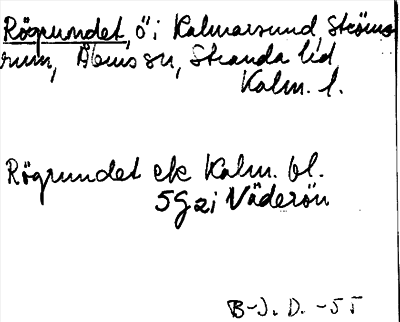 Rögrundet, ö i Kalmarsund, Ströms-
rum, Åbns sn, Stranda hd
Kalm. l.
Rögrundet ek Kalm. bl.
5G2i Väderön
B-J. D. -55